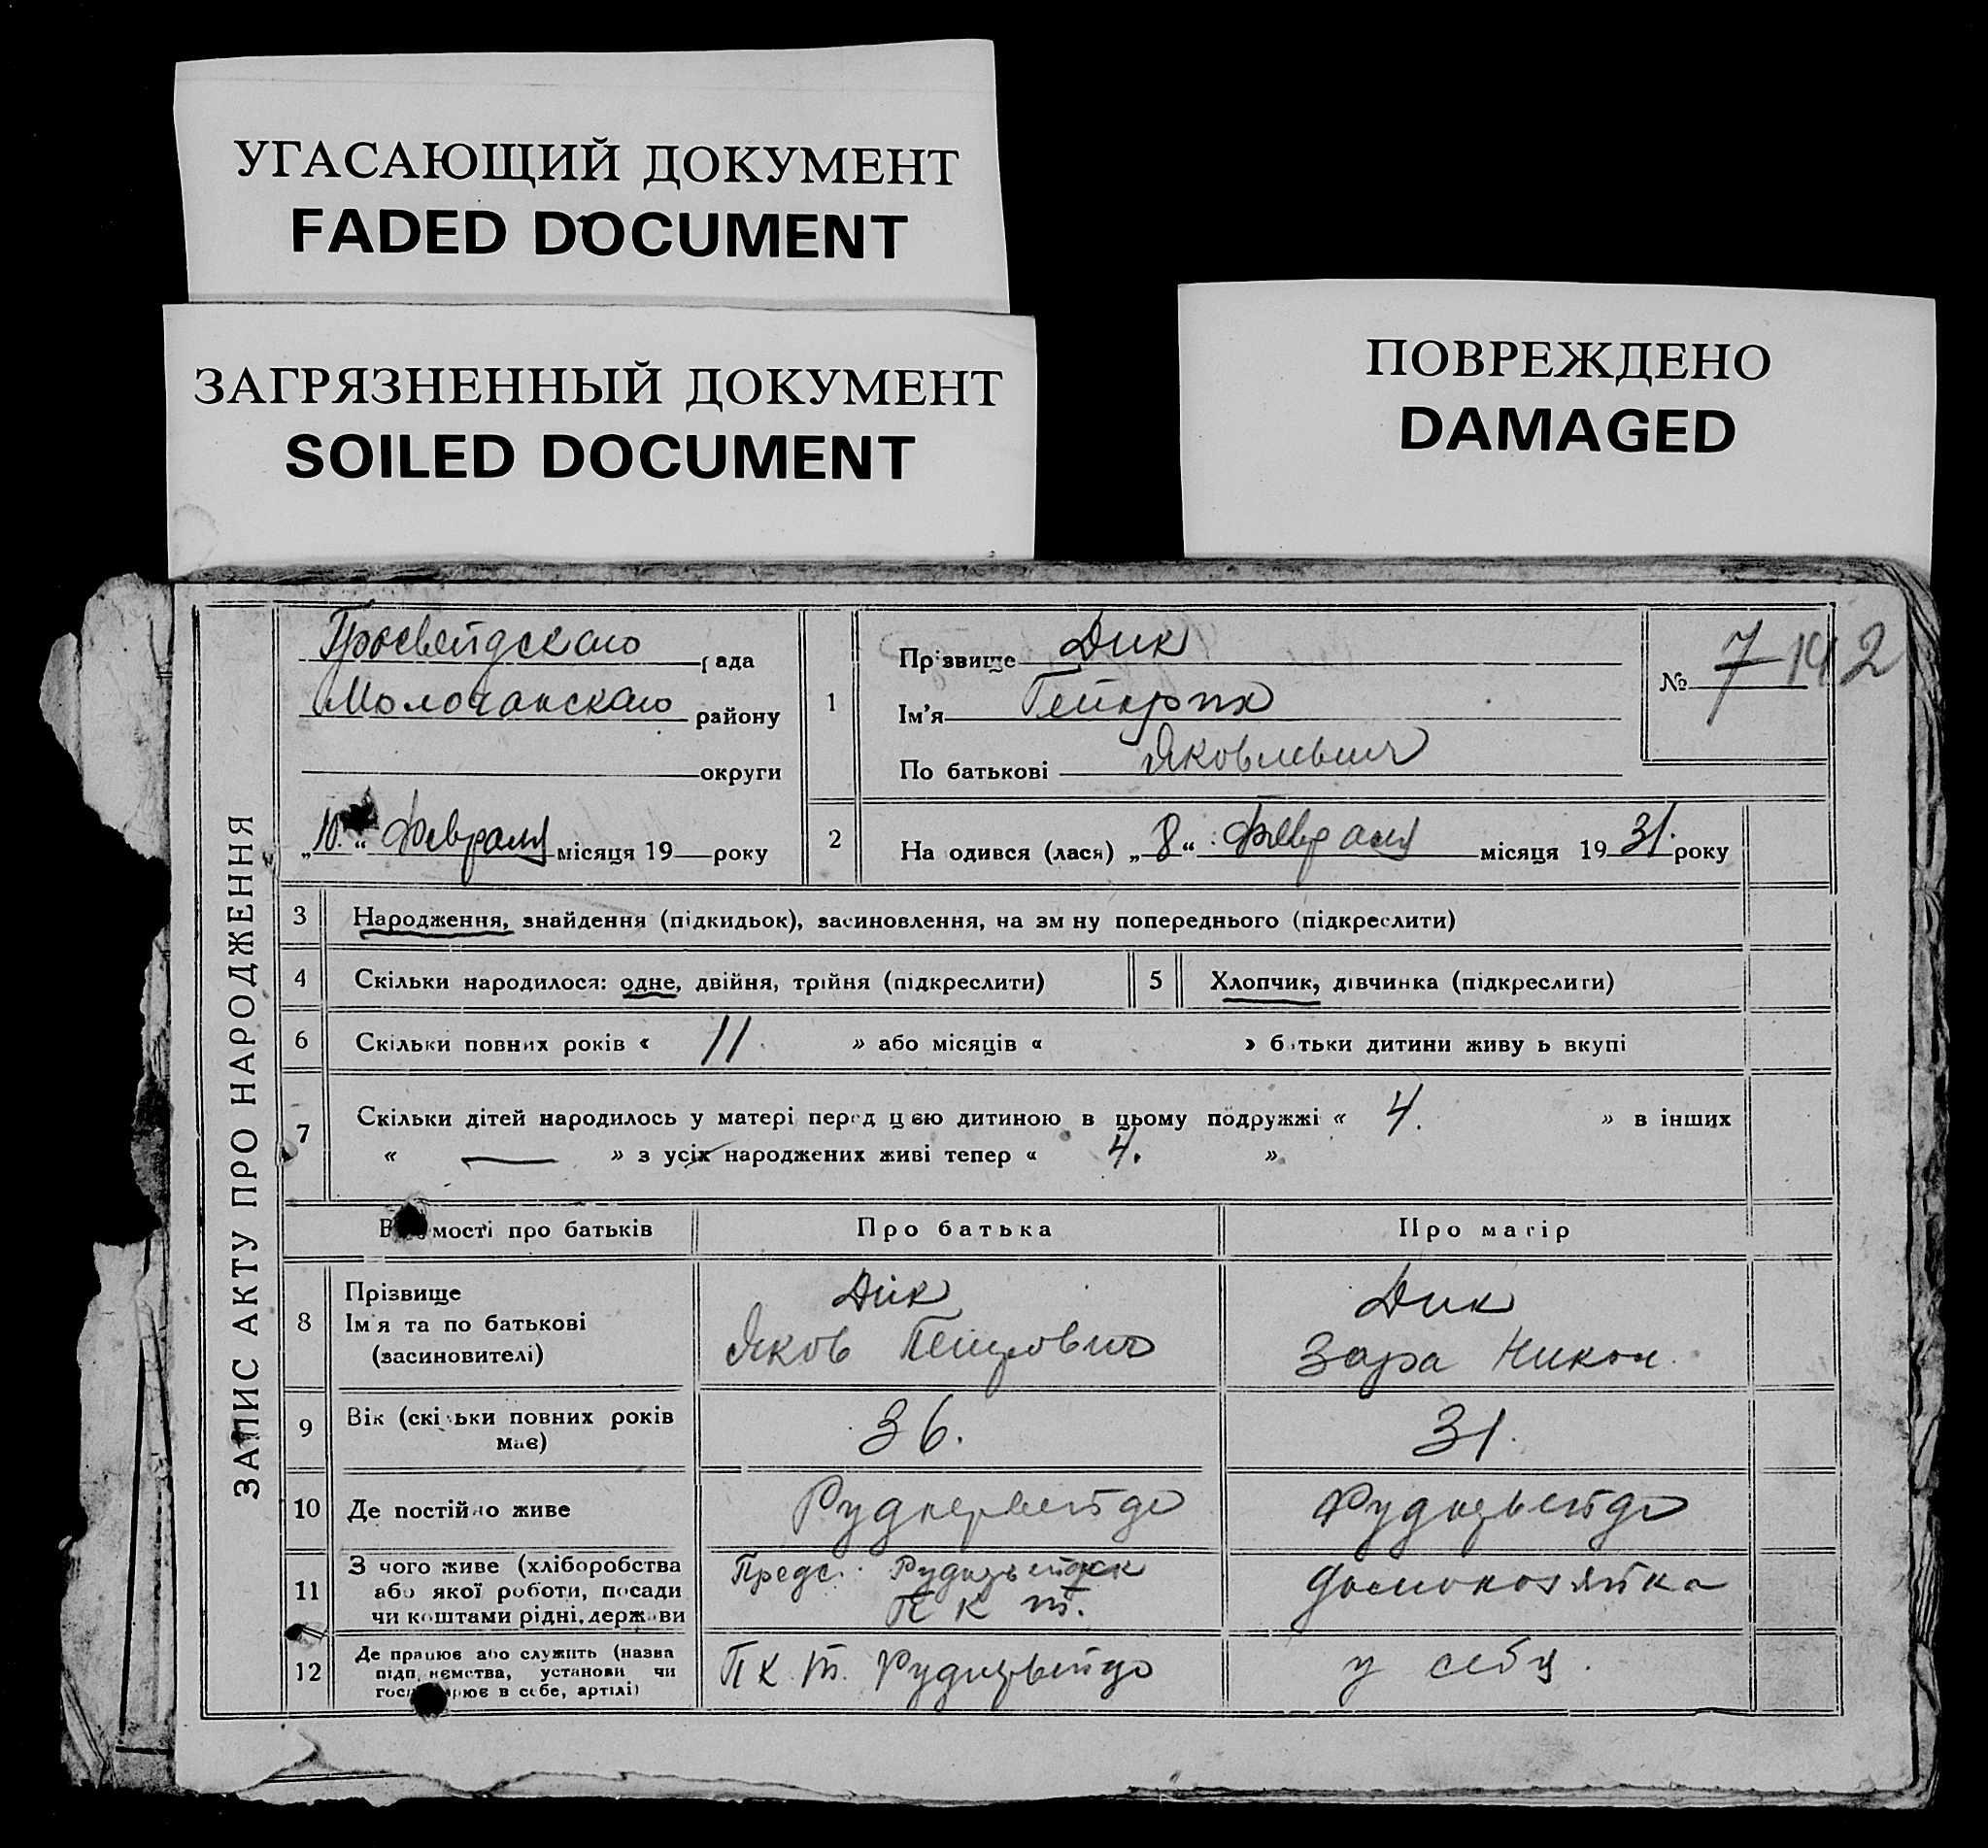 УГАСАЮЩИЙ ДОКУМЕНТ
FADED DOCUMENT
ЗАГРЯЗНЕННЫЙ ДОКУМЕНТ
SOILED DOCUMENT
ПОВРЕЖДЕНО
DAMAGED
ЗАПИС АКТУ ПРО НАРОДЖЕННЯ
рада
Молочанскаго району
округи
„10.“ Февраля місяця 19 року
1
Прізвище Дик
Ім'я Гейнрих
По батькові Яковлевич
№ 7 142
2 На одився (лася) „8“ Февраля місяця 1931. року
3 Народження, знайдення (підкидьок), засиновлення, на зм ну попереднього (підкреслити)
4 Скільки народилося: одне, двійня, трійня (підкреслити)
5 Хлопчик, дівчинка (підкреслити)
6 Скільки повних років « 11. » або місяців « » батьки дитини живу ь вкупі
7 Скільки дітей народилось у матері перед цією дитиною в цьому подружжі « 4. » в інших
« — » з усіх народжених живі тепер « 4. »
В мості про батьків Про батька Про матір
8 Прізвище
Ім'я та по батькові
(засиновителі)
Дик
Яков Петрович
Дик
Зара Никол.
9 Вік (скі ьки повних років
має)
36.
31.
10 Де постійно живе
Руднервейде
Руднервейде
11 З чого живе (хліборобства
або якої роботи, посади
чи коштами рідні, держави
Предс.
П К Т.
домохозяйка
12 Де працює або служить (назва
підп нємства, установи чи
госп рює в себе, артілі)
П К. Т. Руднервейде
у себя.